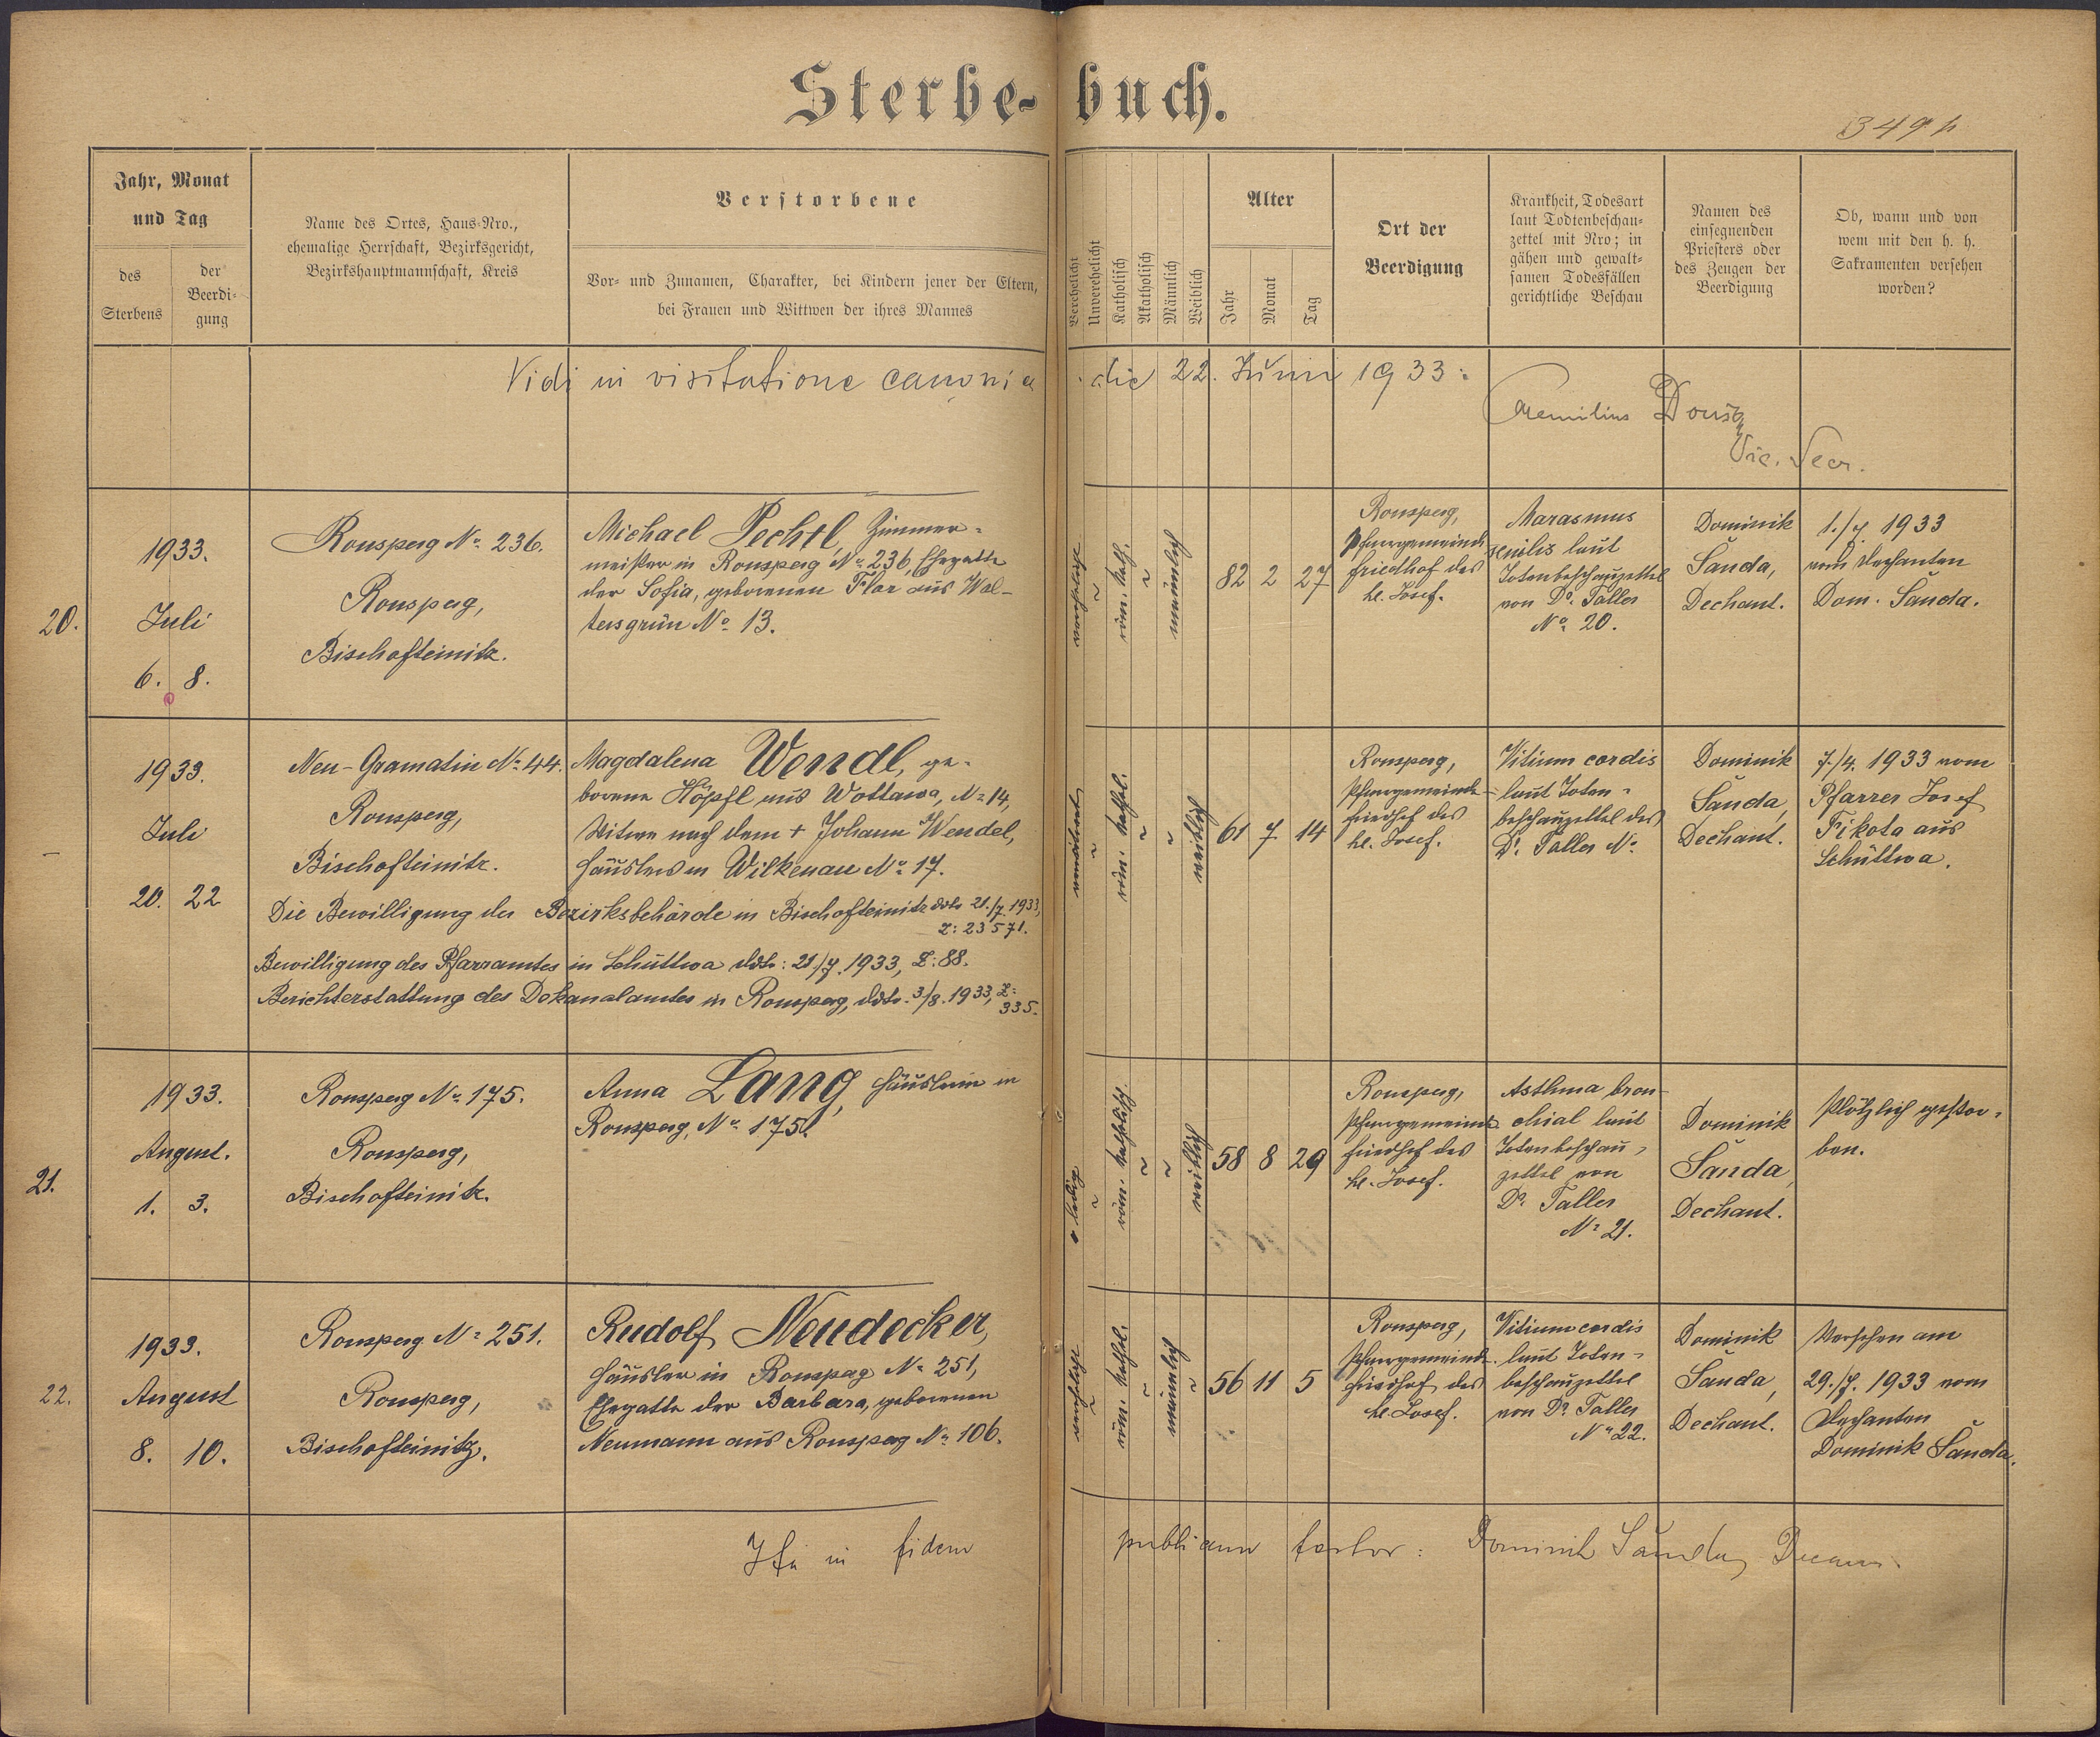 Sterbe-buch.
349
Jahr, Monat
und Tag
des
Sterbens
der
Beerdi-
gung
Name des Ortes, Haus-Nro.,
ehemalige Herrschaft, Bezirksgericht,
Bezirkshauptmannschaft, Kreis
Verstorbene
Vor- und Zunamen, Charakter, bei Kindern jener der Eltern,
bei Frauen und Wittwen der ihres Mannes
Verehelicht
Unverehelicht
Katholisch
Akatholisch
Männlich
Weiblich
Alter
Jahr
Monat
Tag
Ort der
Beerdigung
Krankheit, Todesart
laut Todtenbeschau-
zettel mit Nro; in
gähen und gewalt-
samen Todesfällen
gerichtliche Beschau
Namen des
einsegnenden
Priesters oder
des Zeugen der
Beerdigung
Ob, wann und von
wem mit den h. h.
Sakramenten versehen
worden?
Vidi in visitatione canonica die 22. Junii 1933:
Aemilius
Vic. Secr.
20.
1933.
Juli
6. 8.
Ronsperg No 236.
Ronsperg,
Bischofteinitz.
Michael Pechtl, Zimmer-
meister in Ronsperg No 236, Ehegatte
der Sofia, geborenen Flor aus Wal-
tersgrün No 13.
verehelicht
röm. kath.
männlich
82 2 27
Ronsperg,
Pfarrgemeinde
friedhof des
hl. Josef.
Marasmus
senilis laut
Totenbeschauzettel
von Dr. Taller
No 20.
Dominik
Šanda,
Dechant.
1./7. 1933
vom Dechanten
Dom. Šanda.
1933.
Juli
20. 22
Neu-Gramatin No 44.
Ronsperg,
Bischofteinitz.
Magdalena Wendl, ge-
borene Höpfl aus Wottawa, No 14,
Witwe nach dem + Johann Wendel,
Häuslers in Wilkenau No 17.
Die Bewilligung der Bezirksbehörde in Bischofteinitz ddto 21./7. 1933,
Z: 23571.
Bewilligung des Pfarramtes in Schüttwa ddto: 21./7. 1933, Z: 88.
Berichterstattung des Dekanalamtes in Ronsperg, ddto. 3./8. 1933, Z:
335.
verwitwet
röm. kathol.
weiblich
61 7 14
Ronsperg,
Pfarrgemeinde-
friedhof des
hl. Josef.
Vitium cordis
laut Toten-
beschauzettel des
Dr. Taller No
Dominik
Šanda,
Dechant.
7./4. 1933 vom
Pfarrer Josef
Fikota aus
Schüttwa.
21.
1933.
August.
1. 3.
Ronsperg No 175.
Ronsperg,
Bischofteinitz.
Anna Lang, Häuslerin in
Ronsperg, No 175.
ledig
röm. katholisch.
weiblich
58 8 29
Ronsperg,
Pfarrgemeinde
friedhof des
hl. Josef.
Asthma bron-
chial laut
Totenbeschau-
zettel von
Dr. Taller
No 21.
Dominik
Šanda,
Dechant.
Plötzlich gestor-
ben.
22.
1933.
August
8. 10.
Ronsperg No 251.
Ronsperg,
Bischofteinitz.
Rudolf Neudecker,
Häusler in Ronsperg No 251,
Ehegatte der Barbara, geborenen
Neumann aus Ronsperg No 106.
verehelicht
röm. kathol.
männlich
56 11 5
Ronsperg,
Pfarrgemeinde
friedhof des
hl. Josef.
Vitium cordis
laut Toten-
beschauzettel
von Dr. Taller
No 22.
Dominik
Šanda,
Dechant.
Versehen am
29./7. 1933 vom
Dechanten
Dominik Šanda.
Ita in fidem publicam testor: Dominik Šanda, Decanus.